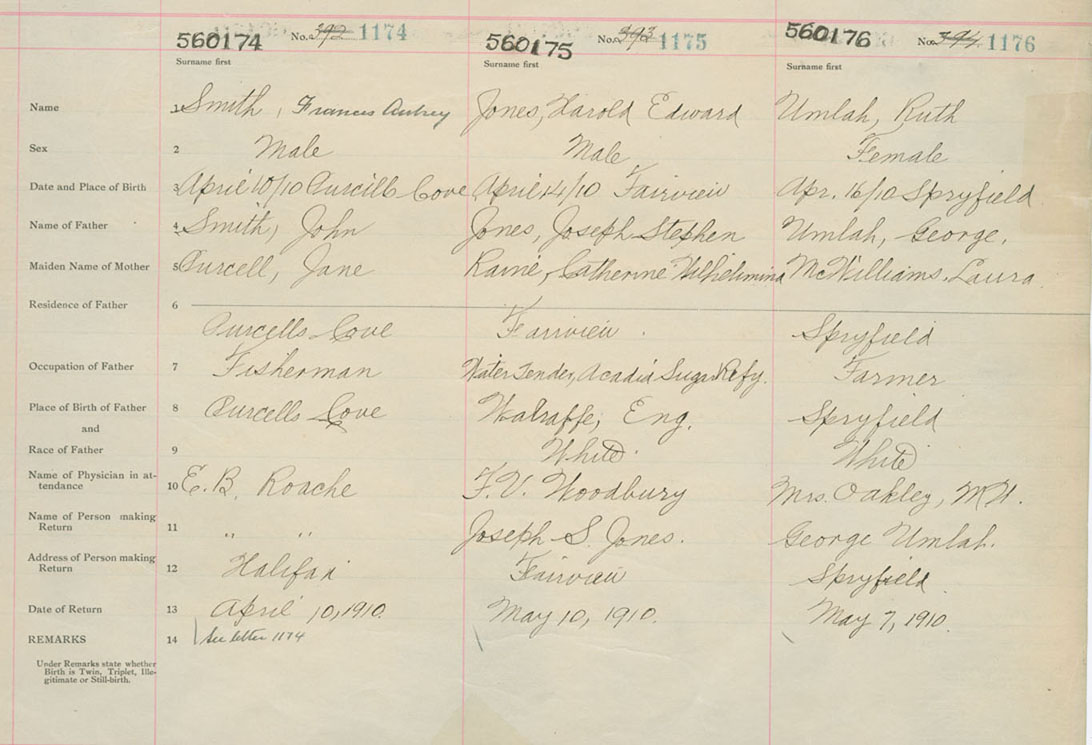 560174 No. 392 1174 560175 No. 393 1175 560176 No. 394 1176
Surname first Surname first Surname first
Name 1 Smith, Francis Aubrey Jones, Harold Edward Umlah, Ruth
Sex 2 Male Male Female
Date and Place of Birth 3 April 10/10 Purcills Cove April 14/10 Fairview Apr. 16/10 Spryfield
Name of Father 4 Smith, John Jones, Joseph Stephen Umlah, George.
Maiden Name of Mother 5 Purcell, Jane Raine, Catherine Wilhelimina McWilliams, Laura
Residence of Father 6
Purcells Cove Fairview Spryfield
Occupation of Father 7 Fisherman Water Tender, Acadia Sugar Refy. Farmer
Place of Birth of Father 8 Purcells Cove Eng. Spryfield
and
Race of Father 9 White White
Name of Physician in at-
tendance 10 E. B. Roache F. V. Woodbury Mrs. Oakley, M.W.
Name of Person making
Return 11 " " Joseph S. Jones. George Umlah.
Address of Person making
Return 12 Halifax Fairview Spryfield
Date of Return 13 April 10, 1910. May 10, 1910. May 7, 1910.
REMARKS 14 See letter 1174
Under Remarks state whether
Birth is Twin, Triplet, Ille-
gitimate or Still-birth.